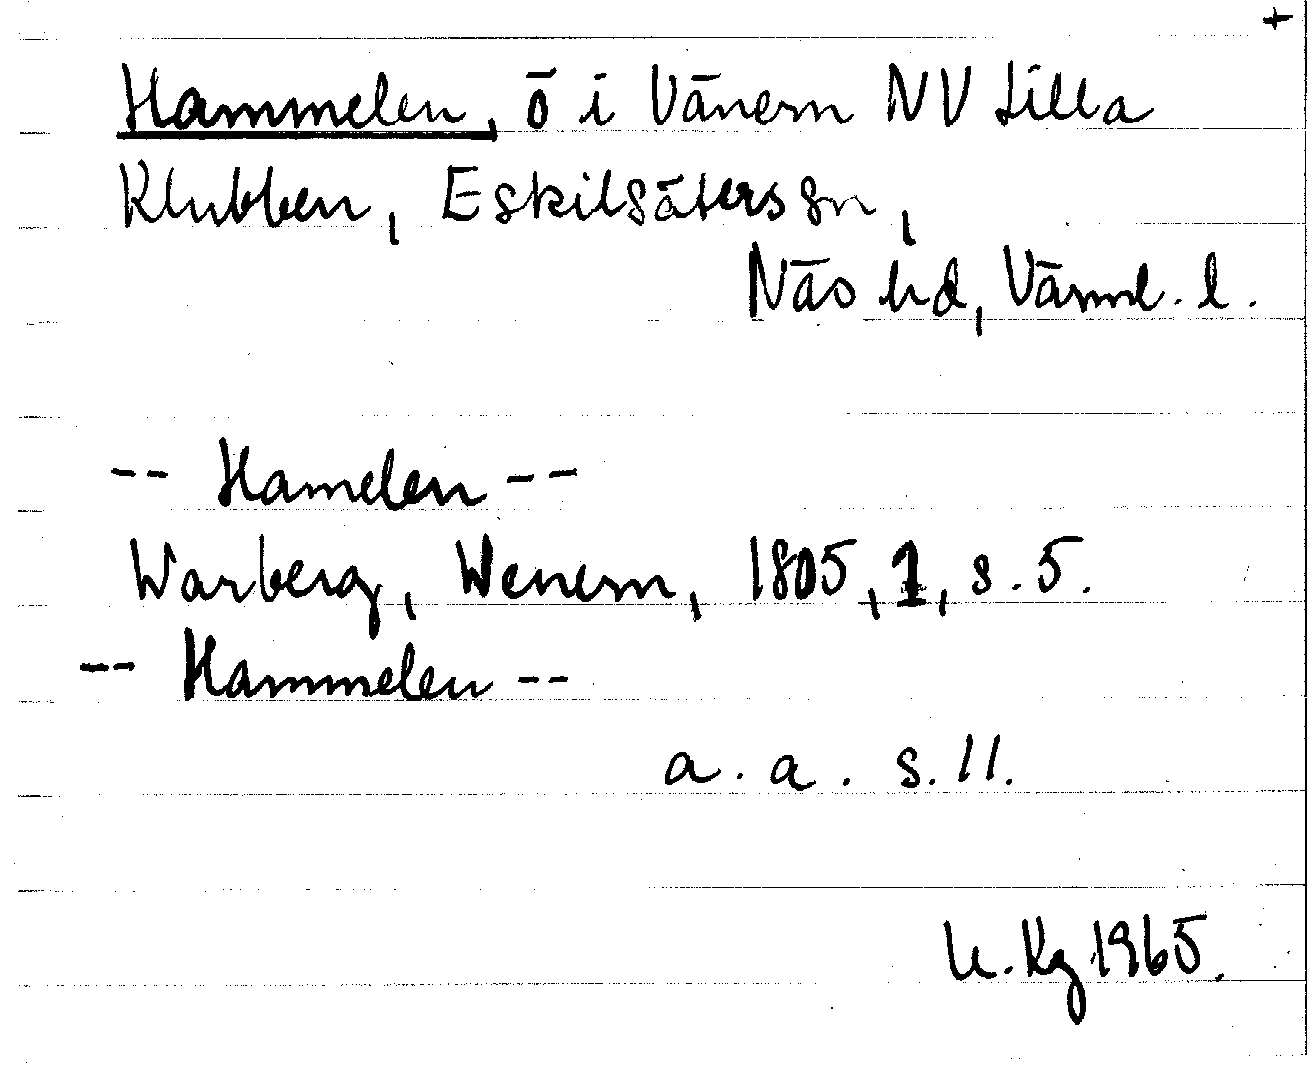 +
Hammelen, ö i Vänern NV Lilla
Klubben, Eskilsäters sn,
Näs hd, Värml. l.
-- Hamelen --
Warberg, Wenern, 1805, 1, s. 5.
-- Hammelen --
a. a. s. 11.
U. Kg 1965.